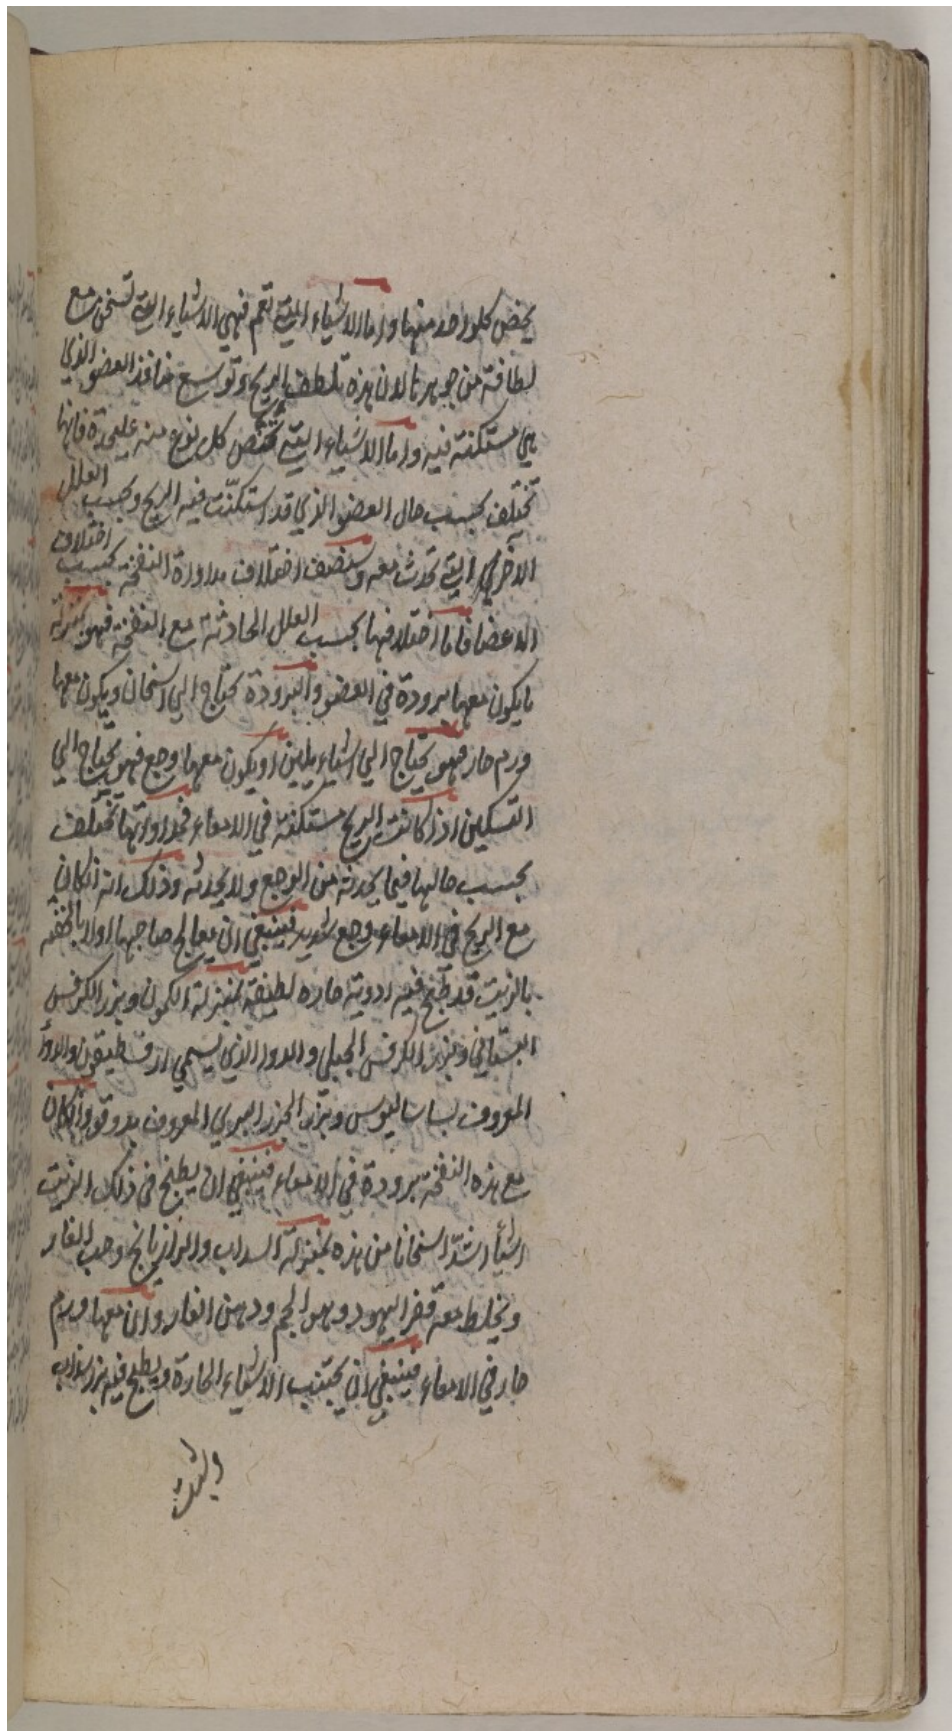 يخص كلواحد منها واما الاشياء التي تعم فهي الاشياء التي تسخن مع
لطافة من جوهرها لان هذه تلطف الريح وتوسع منافذ العضو الذي
هي مستكنة فيه واما الاشياء التي تختص كل نوع منه علىحدة فانها
تختلف بحسب حال العضو الذي قد استكنت فيه الريح وبحسب العلل
الاخرى التي تحدث معه وسنصف اختلاف مداوة النفخة بحسب اختلاف
الاعضا فاما اختلافها بحسب العلل الحادثة مع النفخة فهو بمنزلة
ما يكون معها برودة في العضو والبرودة تحتاج الي اسخان ويكون معها
ورم حار فهو يحتاج الي اشياء يلين او يكون معها وجع فهو يحتاج الي
التسكين اذا كانت الريح مستكنة في الامعاء فمداواتها تختلف
بحسب حالها فيما يحدثه من الوجع ولا يحدثه وذلك انه ان كان
مع الريح في الامعاء وجع شديد فينبغي ان يعالج صاحبها اولا بالحقنه
بالزيت قد طبخ فيه ادوية حاره لطيفة بمنزلة الكمون وبزر الكرفس
البستاني وبزر الكرفس الجبلي والدوا الذي يسمي ارقسطيقون والدوا
المعروف بساساليوس وبزر الجزر البري المعروف بدوقو وان كان
مع هذه النفخة برودة في الامعاء فينبغي ان يطبخ في ذلك الزيت
اشياء اشد اسخانا من هذه بمنزلة السداب والرازيانج وحب الغار
ويخلط معه قفر اليهود وهو الحمر ودهن الغار وان معها ورم
حار في الامعاء فينبغي ان يجتنب الاشياء الحارة ويطبخ فيه بزر سداب
والشبث